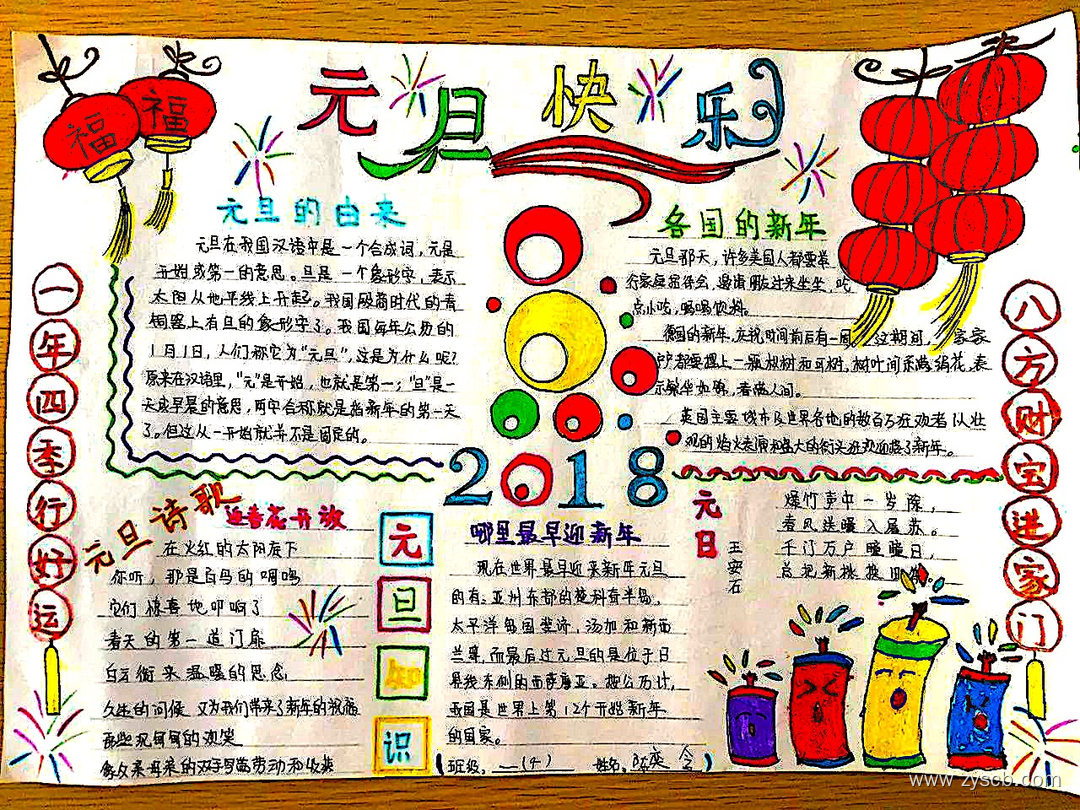 元旦快乐
福
福
元旦的由来
元旦在我国汉语中是一个合成词,元是
开始或第一的意思。旦是一个象形字,表示
太阳从地平线上升起。我国殷商时代的青
铜器上有旦的象形字了。我国每年公历的
1月1日,人们称它为“元旦”,这是为什么呢?
原来在汉语里,“元”是开始,也就是第一;“旦”是一
天或早晨的意思,两字合称就是指新年的第一天
了。但这从一开始就并不是固定的。
各国的新年
元旦那天,许多美国人都要举
行家庭招待会,邀请朋友过来坐坐,吃
点小吃,喝喝饮料。
德国的新年,庆祝时间前后有一周
这期间,家家
户都要摆上一
树和
树,树叶间系满绢花,表
示繁华如锦,春满人间。
英国主要城市及世界各地的数百万狂欢者从壮
观的焰火表演和盛大的街头
迎接了新年。
一年四季行好运
八方财宝进家门
2018
元旦诗歌
迎春花开放
在火红的太阳底下
你听,那是白鸟的啁鸣
它们惊喜地叩响了
春天的第一道门扉
白云衔来温暖的思念
久违的问候又为我们带来了新年的祝福
那些
的欢笑
像父亲母亲的双手
劳动和收获
元旦知识
哪里最早迎新年
现在世界最早迎来新年元旦
的有:亚州东部的楚科奇半岛,
太平洋岛国斐济,汤加和新西
兰等,而最后过元旦的是位于日
界线东侧的西萨摩亚。按公历计,
我国是世界上第12个开始新年
的国家。
元日
王安石
爆竹声中一岁除,
春风送暖入屠苏。
千门万户曈曈日,
总把新桃换旧
班级:一(4) 姓名:
www.zyscb.com